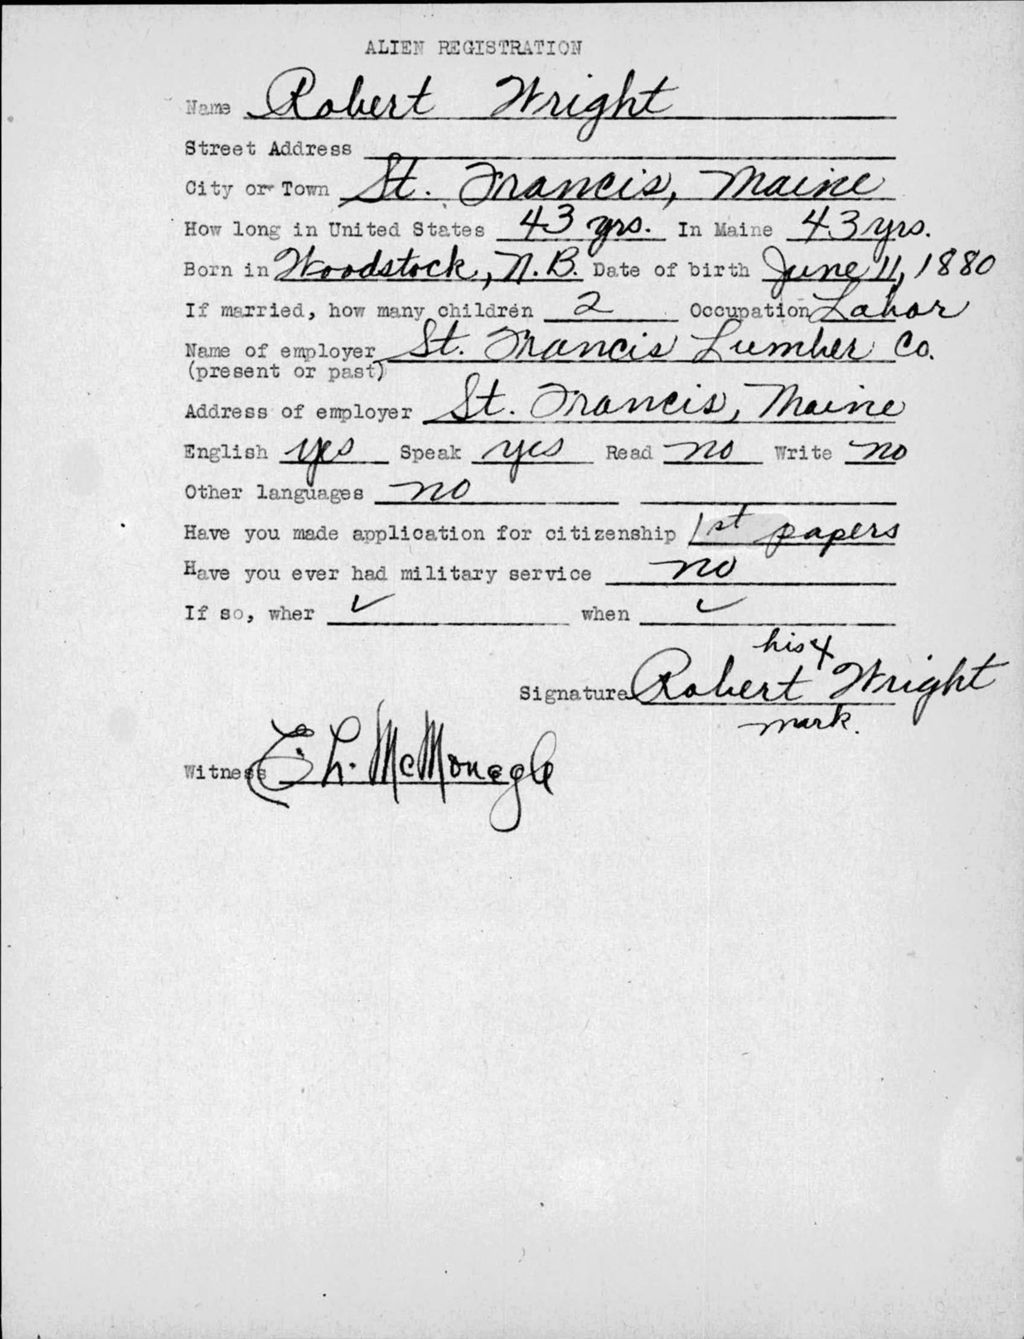 ALIEN REGISTRATION
Name Robert Wright
Street Address
City or Town St. Francis, Maine
How long in United States 43 yrs. In Maine 43 yrs.
Born in Woodstock, N.B. Date of birth June 11, 1880
If married, how many children 2 Occupation Labor
Name of employer St. Francis Lumber Co.
(present or past)
Address of employer St. Francis, Maine
English yes Speak yes Read no Write no
Other languages no
Have you made application for citizenship 1st papers
Have you ever had military service no
If so, wher ✓ when ✓
his x
Signature Robert Wright
mark.
Witness E. L. McMonagle